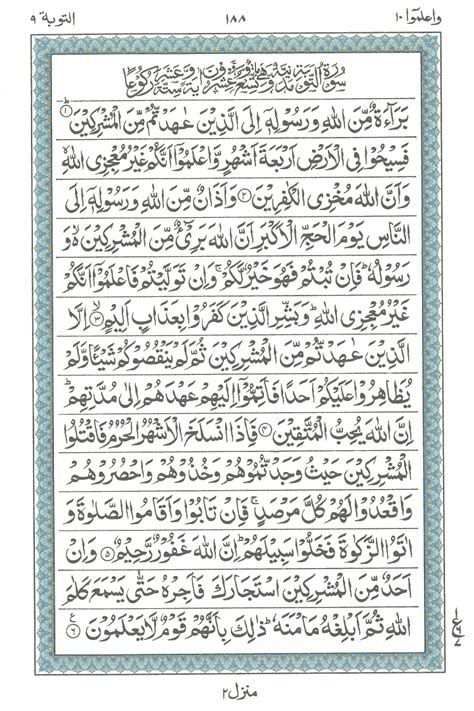 واعلموآ ١٠ ١٨٨ التوبة ٩
سُوْرَةُ التَّوْبَةِ مَدَنِيَّةٌ وَّهِيَ مِائَةٌ وَّتِسْعٌ وَّعِشْرُوْنَ اٰيَةً وَّسِتَّةَ عَشَرَ رُكُوْعًا
بَرَآءَةٌ مِّنَ اللّٰهِ وَرَسُوْلِهٖۤ اِلَى الَّذِيْنَ عٰهَدْتُّمْ مِّنَ الْمُشْرِكِيْنَ ؕ﴿۱﴾
فَسِيْحُوْا فِي الْاَرْضِ اَرْبَعَةَ اَشْهُرٍ وَّاعْلَمُوْۤا اَنَّكُمْ غَيْرُ مُعْجِزِي اللّٰهِ ۙ
وَاَنَّ اللّٰهَ مُخْزِي الْكٰفِرِيْنَ ﴿۲﴾ وَاَذَانٌ مِّنَ اللّٰهِ وَرَسُوْلِهٖۤ اِلَى
النَّاسِ يَوْمَ الْحَجِّ الْاَكْبَرِ اَنَّ اللّٰهَ بَرِيْٓءٌ مِّنَ الْمُشْرِكِيْنَ ۙ۬ وَ
رَسُوْلُهٗ ؕ فَاِنْ تُبْتُمْ فَهُوَ خَيْرٌ لَّكُمْ ۚ وَاِنْ تَوَلَّيْتُمْ فَاعْلَمُوْۤا اَنَّكُمْ
غَيْرُ مُعْجِزِي اللّٰهِ ؕ وَبَشِّرِ الَّذِيْنَ كَفَرُوْا بِعَذَابٍ اَلِيْمٍ ۙ﴿۳﴾ اِلَّا
الَّذِيْنَ عٰهَدْتُّمْ مِّنَ الْمُشْرِكِيْنَ ثُمَّ لَمْ يَنْقُصُوْكُمْ شَيْـًٔا وَّلَمْ
يُظَاهِرُوْا عَلَيْكُمْ اَحَدًا فَاَتِمُّوْۤا اِلَيْهِمْ عَهْدَهُمْ اِلٰى مُدَّتِهِمْ ؕ
اِنَّ اللّٰهَ يُحِبُّ الْمُتَّقِيْنَ ﴿۴﴾ فَاِذَا انْسَلَخَ الْاَشْهُرُ الْحُرُمُ فَاقْتُلُوا
الْمُشْرِكِيْنَ حَيْثُ وَجَدْتُّمُوْهُمْ وَخُذُوْهُمْ وَاحْصُرُوْهُمْ
وَاقْعُدُوْا لَهُمْ كُلَّ مَرْصَدٍ ۚ فَاِنْ تَابُوْا وَاَقَامُوا الصَّلٰوةَ وَ
اٰتَوُا الزَّكٰوةَ فَخَلُّوْا سَبِيْلَهُمْ ؕ اِنَّ اللّٰهَ غَفُوْرٌ رَّحِيْمٌ ﴿۵﴾ وَاِنْ
اَحَدٌ مِّنَ الْمُشْرِكِيْنَ اسْتَجَارَكَ فَاَجِرْهُ حَتّٰى يَسْمَعَ كَلٰمَ
اللّٰهِ ثُمَّ اَبْلِغْهُ مَاْمَنَهٗ ؕ ذٰلِكَ بِاَنَّهُمْ قَوْمٌ لَّا يَعْلَمُوْنَ ﴿۶﴾ ع
منزل ٢